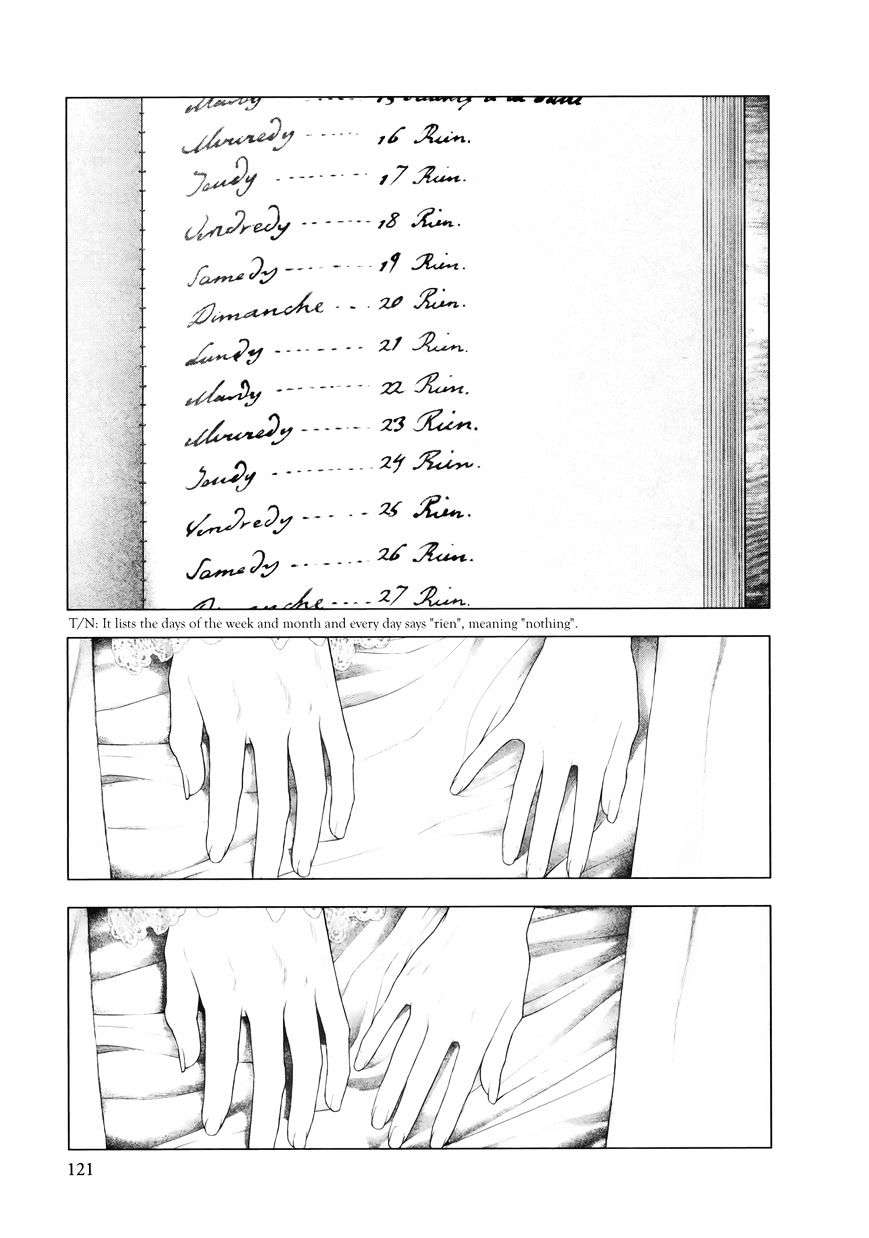 Mercredy ------ 16 Rien.
Jeudy -------- 17 Rien.
Vendredy -------- 18 Rien.
Samedy -------- 19 Rien.
Dimanche --- 20 Rien.
Lundy -------- 21 Rien.
Mardy --------- 22 Rien.
Mercredy ------- 23 Rien.
Jeudy --------- 24 Rien.
Vendredy ----- 25 Rien.
Samedy ------- 26 Rien.
Dimanche ---- 27 Rien.
T/N: It lists the days of the week and month and every day says "rien", meaning "nothing".
121